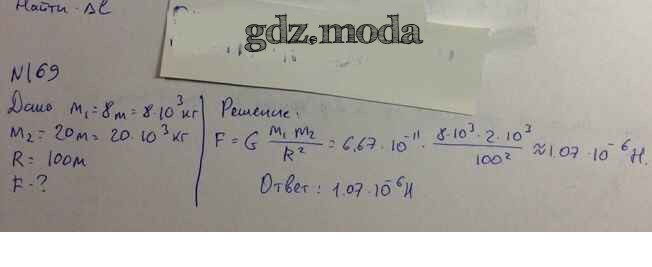 Найти: Δl
gdz.moda
N169
Дано m₁=8т=8·10³кг
m₂=20т=20·10³кг
R=100м
F-?
Решение:
F=G m₁m₂/R² = 6,67·10⁻¹¹· 8·10³·2·10³/100² ≈1,07·10⁻⁶Н.
Ответ: 1,07·10⁻⁶Н